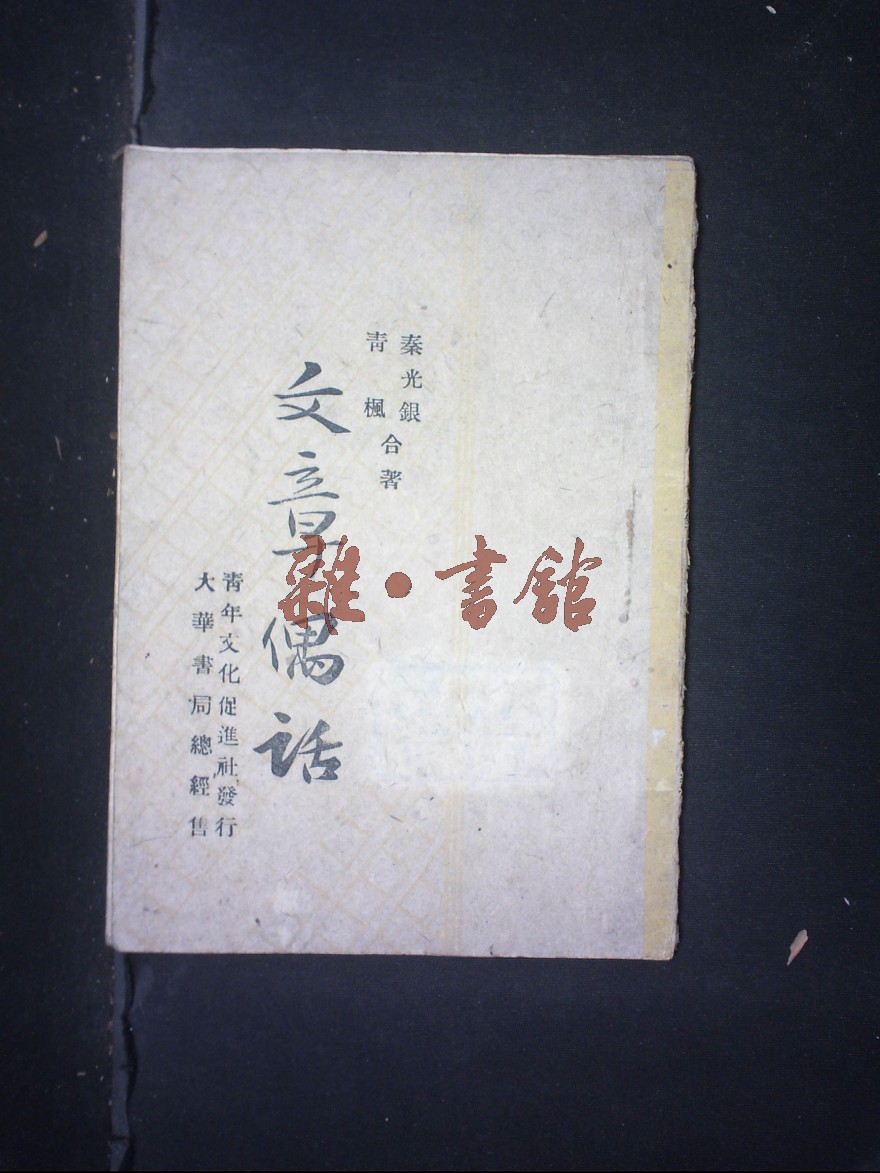 秦光銀
青楓
合著
文章偶話
青年文化促進社發行
大華書局總經售
雜·書館